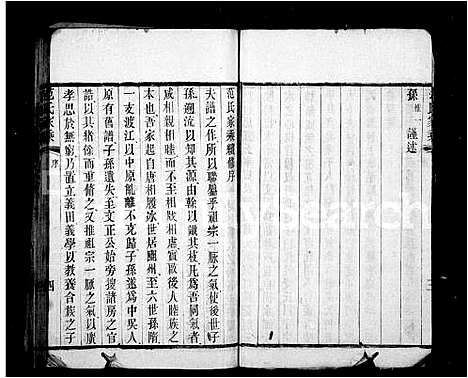 孫惟一謹述
范氏家乘續修序
夫譜之作所以聯屬乎祖宗一脈之氣使後世子
孫遡流以知源合榦以識其枝凡爲吾同氣者
咸相親相睦而不至相賊相虐實敬後人睦族之
本也吾家起自唐相履冰世居鄜州至六世孫隋
一支渡江以中原亂離不克歸子孫遂爲中吳人
原有舊譜子孫遺失至文正公始旁搜諸房之官
誥以其猶係而重脩之又推祖宗一脈之氣以廣
孝思於無窮乃置立義田義學以教養合族之子
范氏家乘
序
四